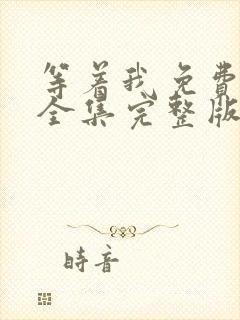 等着我免費
全集完整版
時音